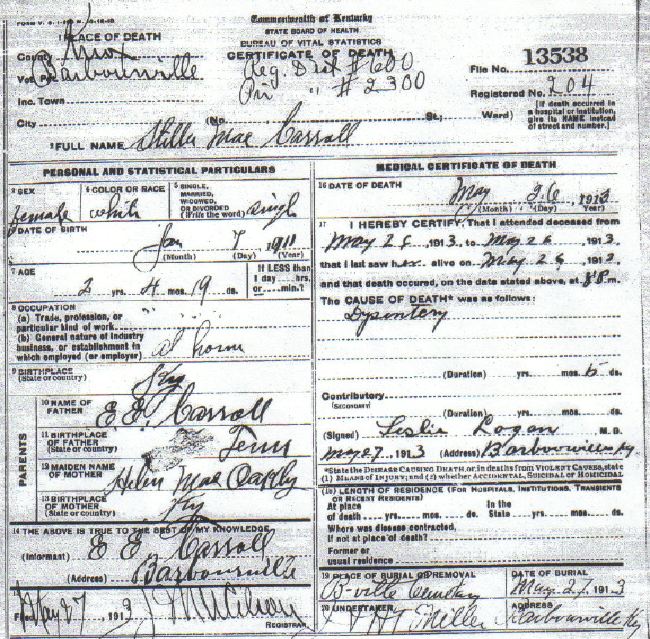 Commonwealth of Kentucky
STATE BOARD OF HEALTH
BUREAU OF VITAL STATISTICS
CERTIFICATE OF DEATH
PLACE OF DEATH
County Knox
Barbourville
Inc. Town
City
Reg. Dist #600
Pri " #2300
File No. 13538
Registered No. 204
(No. St.; Ward)
[If death occurred in a hospital or institution, give its NAME instead of street and number.]
2 FULL NAME Mae Carroll
PERSONAL AND STATISTICAL PARTICULARS
3 SEX
female
4 COLOR OR RACE
white
5 SINGLE, MARRIED, WIDOWED, OR DIVORCED (Write the word) Single
6 DATE OF BIRTH
Jan 7 1911
(Month) (Day) (Year)
7 AGE
2 yrs. 4 mos. 19 ds.
If LESS than 1 day hrs. or min.?
8 OCCUPATION
(a) Trade, profession, or particular kind of work
(b) General nature of industry business, or establishment in which employed (or employer) at home
9 BIRTHPLACE
(State or country) Ky
PARENTS
10 NAME OF FATHER E E Carroll
11 BIRTHPLACE OF FATHER
(State or country) Tenn
12 MAIDEN NAME OF MOTHER Helen Mae Oakley
13 BIRTHPLACE OF MOTHER
(State or country) Ky
14 THE ABOVE IS TRUE TO THE BEST OF MY KNOWLEDGE
(Informant) E E Carroll
(Address) Barbourville
Filed May 27 1913
REGISTRAR
MEDICAL CERTIFICATE OF DEATH
16 DATE OF DEATH
May 26 1913
(Month) (Day) (Year)
17 I HEREBY CERTIFY, That I attended deceased from
May 1913 to May 26 1913
that I last saw her alive on May 191
and that death occured, on the date stated above, at 8 P.m.
The CAUSE OF DEATH* was as follows:
Dysintery
(Duration) yrs. mos. ds.
Contributory
(SECONDARY)
(Duration) yrs. mos. ds.
(Signed) Leslie Logan M. D.
May 27, 1913 (Address) Barbourville Ky
*State the DISEASE CAUSING DEATH, or, in deaths from VIOLENT CAUSES, state (1) MEANS OF INJURY; and (2) whether ACCIDENTAL, SUICIDAL or HOMICIDAL
18 LENGTH OF RESIDENCE (FOR HOSPITALS, INSTITUTIONS, TRANSIENTS OR RECENT RESIDENTS)
At place of death yrs. mos. ds. In the State yrs. mos. ds.
Where was disease contracted,
If not at place of death?
Former or usual residence
19 PLACE OF BURIAL OR REMOVAL
B-ville Cemetery
DATE OF BURIAL
May 27 1913
20 UNDERTAKER
Miller
ADDRESS
Barbourville Ky